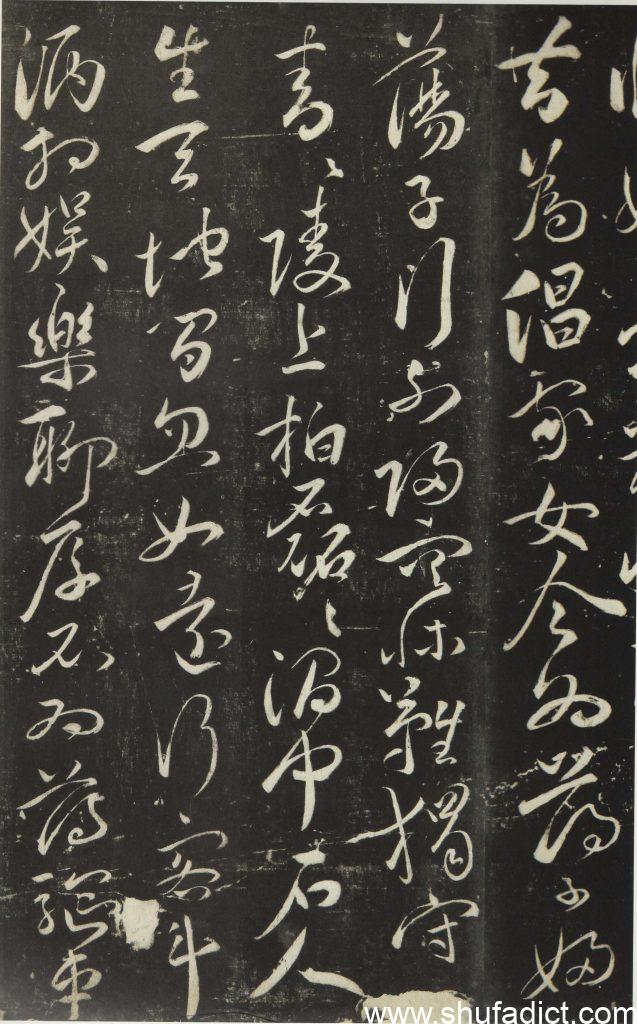 昔為倡家女今為蕩子婦
蕩子行不歸空牀難獨守
青〻陵上柏磊〻澗中石人
生天地間忽如遠行客斗
酒相娛樂聊厚不為薄驅車
www.shufadict.com